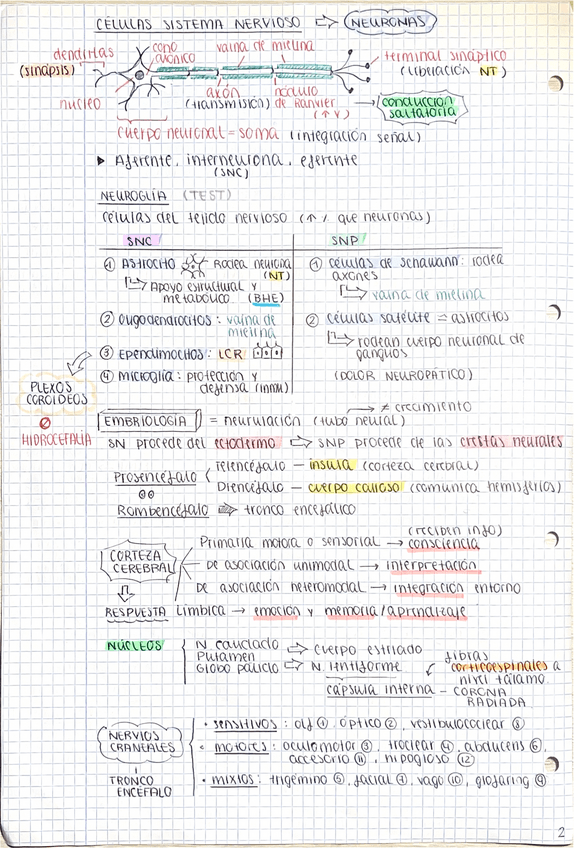 CÉLULAS SISTEMA NERVIOSO ⇨ NEURONAS
dendritas
(sinápsis)
cono
axónico
vaina de mielina
terminal sináptico
(liberación NT)
núcleo
axón
(transmisión)
nódulo
de Ranvier
(↑V)
→ conducción
saltatoria
cuerpo neuronal = soma (integración señal)
▸ Aferente, interneurona, eferente
(SNC)
NEUROGLÍA (TEST)
Células del tejido nervioso (↑% que neuronas)
SNC
① ASTROCITO Rodea neurona
(NT)
Apoyo estructural y
metabólico (BHE)
② Oligodendrocitos: vaina de
mielina
③ Ependimocitos: LCR
④ Microglia: protección y
defensa (inmu)
SNP
① células de schwann: rodea
axones
vaina de mielina
② células satélite = astrocitos
rodean cuerpo neuronal de
ganglios
(DOLOR NEUROPÁTICO)
PLEXOS
COROIDEOS
HIDROCEFALIA
EMBRIOLOGÍA = neurulación (tubo neural)
→ ≠ crecimiento
SN procede del ectodermo ⇨ SNP procede de las crestas neurales
Prosencéfalo
Telencéfalo – insula (corteza cerebral)
Diencéfalo – cuerpo calloso (comunica hemisferios)
Rombencéfalo ⇨ tronco encefálico
CORTEZA
CEREBRAL
RESPUESTA
(reciben info)
Primaria motora o sensorial → consciencia
De asociación unimodal → interpretación
De asociación heteromodal → integración entorno
Límbica → emoción y memoria/aprendizaje
NÚCLEOS
N. caudado
Putamen
Globo pálido
⇨ cuerpo estriado
⇨ N. lentiforme
fibras
corticoespinales a
nivel tálamo
cápsula interna – CORONA
RADIADA
NERVIOS
CRANEALES
TRONCO
ENCÉFALO
• sensitivos: olf ①, óptico ②, vestibulococlear ⑧
• motores: oculomotor ③, troclear ④, abducens ⑥,
accesorio ⑪, hipogloso ⑫
• mixtos: trigémino ⑤, facial ⑦, vago ⑩, glosofaring ⑨
2